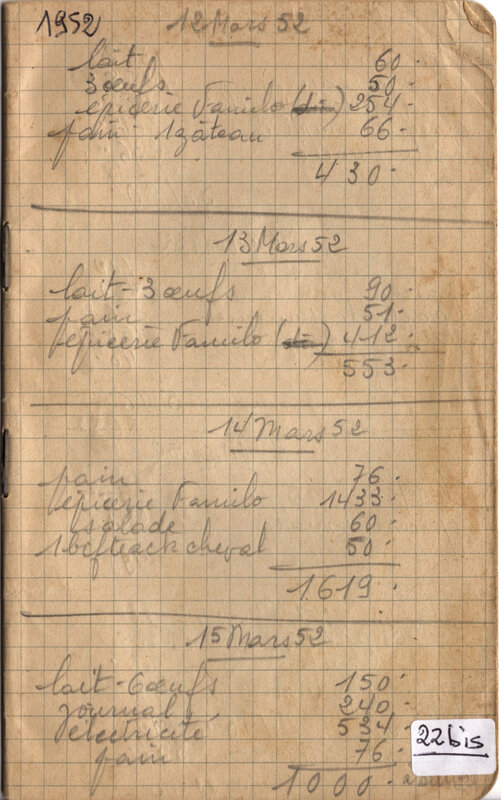 1952
12 Mars 52
lait 60.
3 œufs 50.
épicerie Familo ( ) 254.
pain 1 gâteau 66.
430.
13 Mars 52
lait - 3 œufs 90.
pain 51.
épicerie Familo ( ) 412.
553.
14 Mars 52
pain 76.
épicerie Familo 1433.
salade 60.
1 befteack cheval 50.
1619.
15 Mars 52
lait - 6 œufs 150.
journal 240.
électricité 534
pain 76.
1000.
22bis